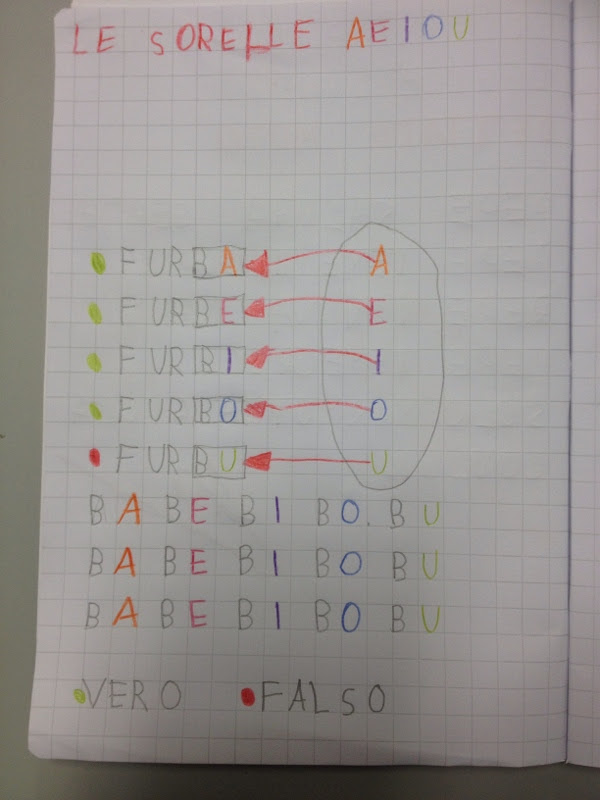 LE SORELLE AEIOU
FURBA A
FURBE E
FURBI I
FURBO O
FURBU U
BA BE BI BO. BU
BA BE BI BO BU
BA BE BI BO BU
VERO FALSO